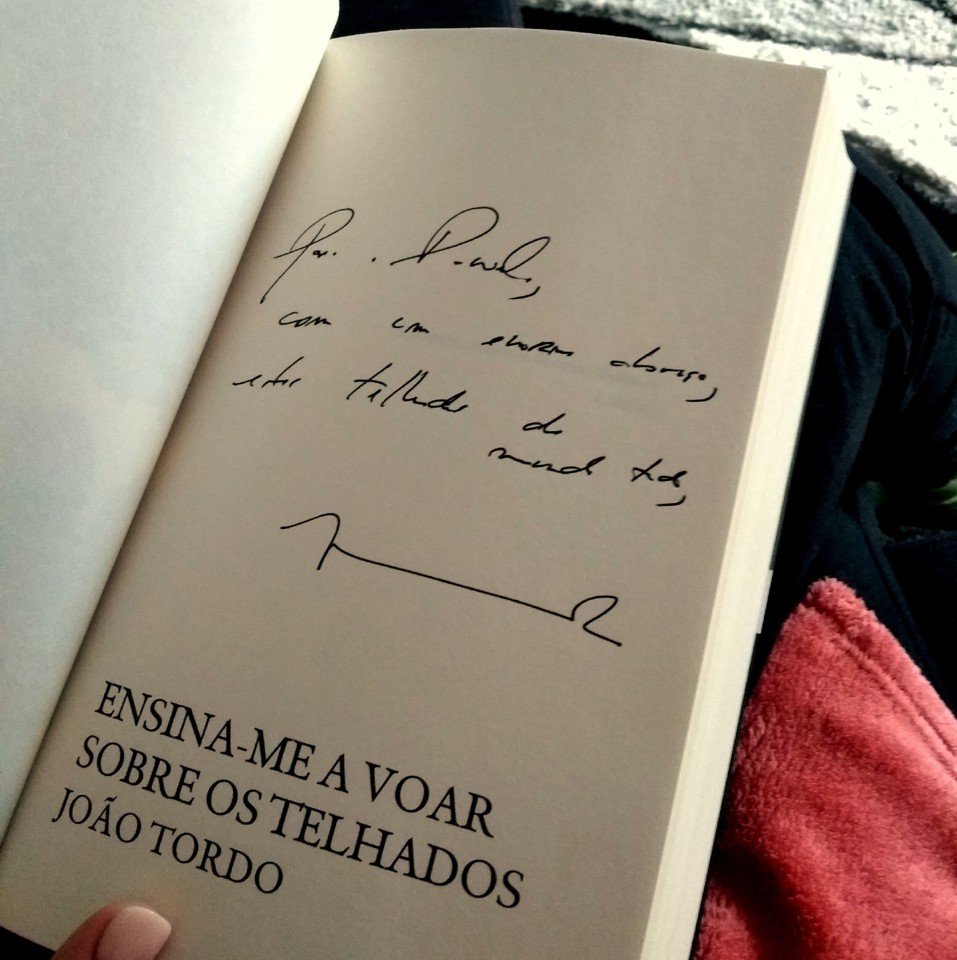 Para
com um enorme abraço,
estes telhados do
mundo todo,
ENSINA-ME A VOAR
SOBRE OS TELHADOS
JOÃO TORDO